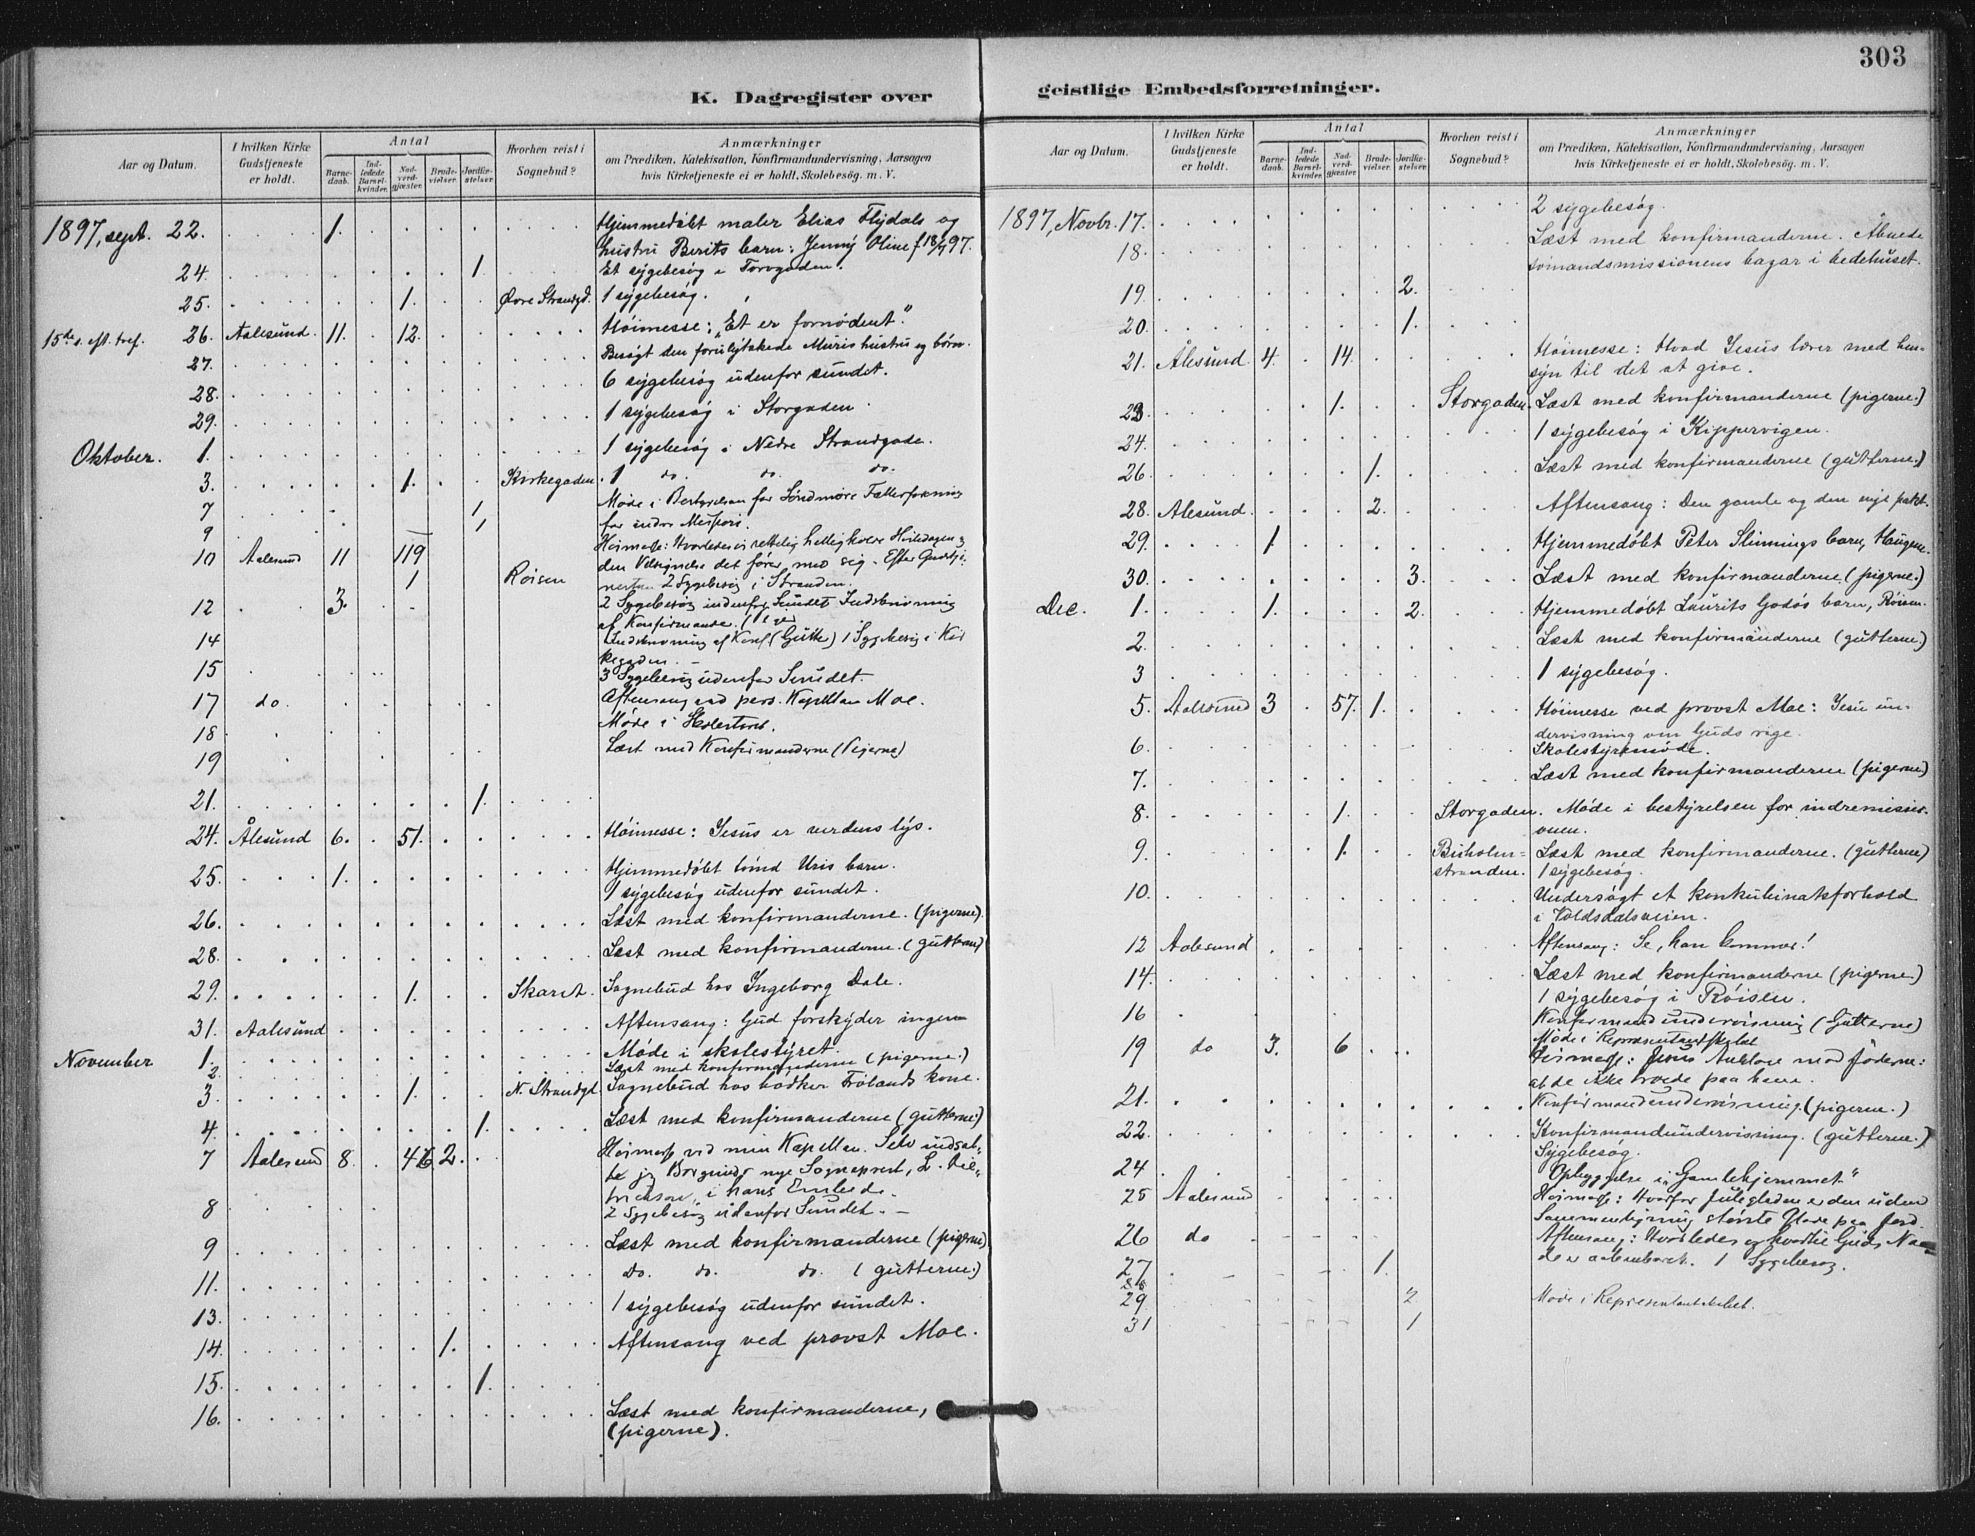 303
K. Dagregister over geistlige Embedsforretninger.
Aar og Datum. I hvilken Kirke Gudstjeneste er holdt. Antal Barnedaab. Indledede Barselkvinder. Nadverdgjæster. Brudevielser. Jordfæstelser. Hvorhen reist i Sognebud? Anmærkninger om Prædiken, Katekisation, Konfirmandundervisning, Aarsagen hvis Kirketjeneste ei er holdt, Skolebesög. m. V.
1897, sept. 22. 1. Hjemmedøbt maler Elias Flydals og
hustru Berits barn: Jenny Oline f 18/9 97.
24. 1. Et sygebesøg i Torvgaden.
25. 1. Øvre Strandgd. 1 sygebesøg.
15de s. eft. tref. 26. Aalesund. 11. 12. Høimesse: "Et er fornødent".
27. Besøgt den forulykkede Muris hustru og børn.
28. 6 sygebesøg udenfor sundet.
29. 1 sygebesøg i Storgaden.
Oktober. 1. 1 sygebesøg i Nedre Strandgade.
3. 1. Kirkegaden. 1 do. do. do.
7 1 Møde i Bestyrelsen for Søndmøre Fællesforening
for indre Mission.
9 1
10 Aalesund 11 119 Høimesse: Hvorledes vi rettelig helligholde Hviledagen og
den Velsignelse det fører med sig. Efter Gudstje-
nesten 2 Sygebesøg i Stranden.
1 Røisen
12 3. 2 Sygebesøg udenfor Sundet Indskrivning
af Konfirmande.
14 Indskrivning af Konf. (Gutte) 1 Sygebesøg i Kir
kegaden.
15 3 Sygebesøg udenfor Sundet.
17 do. Aftensang ved pers. Kapellan Moe.
18 Møde i
19 Læst med Konfirmanderne (Pigerne)
21. 1.
24. Ålesund 6. 51. Høimesse: Jesus er verdens lys.
25. 1. Hjemmedøbt Uris barn.
1 sygebesøg udenfor sundet.
26. Læst med konfirmanderne. (pigerne).
28. Læst med konfirmanderne. (gutterne)
29. 1. Skaret. Sognebud hos Ingeborg Dale.
31. Aalesund Aftensang: Gud forskyder ingen
November 1. Møde i skolestyret.
2. Læst med konfirmanderne (pigerne.)
3. 1. N. Strandgd. Sognebud hos bødker Frølands kone.
4. 1. Læst med konfirmanderne (gutterne.)
7 Aalesund 8. 46 2. Høimesse ved min Kapellan. Selv indsat-
te jeg Borgunds nye Sogneprest, L.
i hans Embede.
8 2 Sygebesøg udenfor Sundet.
9 Læst med konfirmanderne (pigerne)
11. do. do. do. (gutterne.)
13. 1 sygebesøg udenfor sundet.
14. 1. Aftensang ved provst Moe.
15. 1.
16. Læst med konfirmanderne,
(pigerne).
Aar og Datum. I hvilken Kirke Gudstjeneste er holdt. Antal Barnedaab. Indledede Barselkvinder. Nadverdgjæster. Brudevielser. Jordfæstelser. Hvorhen reist i Sognebud? Anmærkninger om Prædiken, Katekisation, Konfirmandundervisning, Aarsagen hvis Kirketjeneste ei er holdt, Skolebesög. m. V.
1897, Novbr. 17. 2 sygebesøg.
18. Læst med konfirmanderne. Åbnede
sømandsmissionens bazar i bedehuset.
19. 2.
20. 1.
21. Ålesund. 4. 14. Høimesse: Hvad Jesus lærer med hen-
syn til det at give.
23. 1. Storgaden. Læst med konfirmanderne (pigerne.)
24. 1 sygebesøg i Kippervigen.
26. 1. Læst med konfirmanderne (gutterne.)
28. Ålesund. 2. Aftensang: Den gamle og den nye pakt.
29. 1 Hjemmedøbt Peter Slinnings barn, Haugene.
30. 3. Læst med konfirmanderne. (pigerne.)
Dec. 1. 1. 2. Hjemmedøbt Laurits Godøs barn, Røisen.
2. Læst med konfirmanderne (gutterne.)
3 1 sygebesøg.
5. Aalesund 3 57. 1. Høimesse ved provst Moe: Jesu un-
dervisning om Guds rige.
6. Skolestyremøde.
7. Læst med konfirmanderne (pigerne)
8. 1. Storgaden. Møde i bestyrelsen for indremissio-
nen.
9. 1. Bisholm- Læst med konfirmanderne. (gutterne)
stranden. 1 sygebesøg.
10. Undersøgt et konkubinatsforhold
i Voldsdalsveien.
12 Aalesund Aftensang: Se, han kommer!
14. Læst med konfirmanderne (pigerne.)
1 sygebesøg i Røisen.
16 Konfirmandundervisning (Gutterne)
Møde i Repræsentantskabet
19 do 3. 6 Høimesse: Jesus Anklage mod Jøderne:
at de ikke troede paa ham.
21. Konfirmandundervisning. (pigerne.)
22. Konfirmandundervisning. (gutterne.)
Sygebesøg.
24. Opbyggelse i "Gamlehjemmet"
25 Aalesund Høimesse: Hvorfor Juleglæden er den uden
Sammenligning største Glæde paa Jord.
26 do Aftensang: Hvorledes og hvortil Guds Naa-
de er aabenbaret. 1 Sygebesøg.
27 1.
28
29 2 Møde i Repræsentantskabet.
31 1